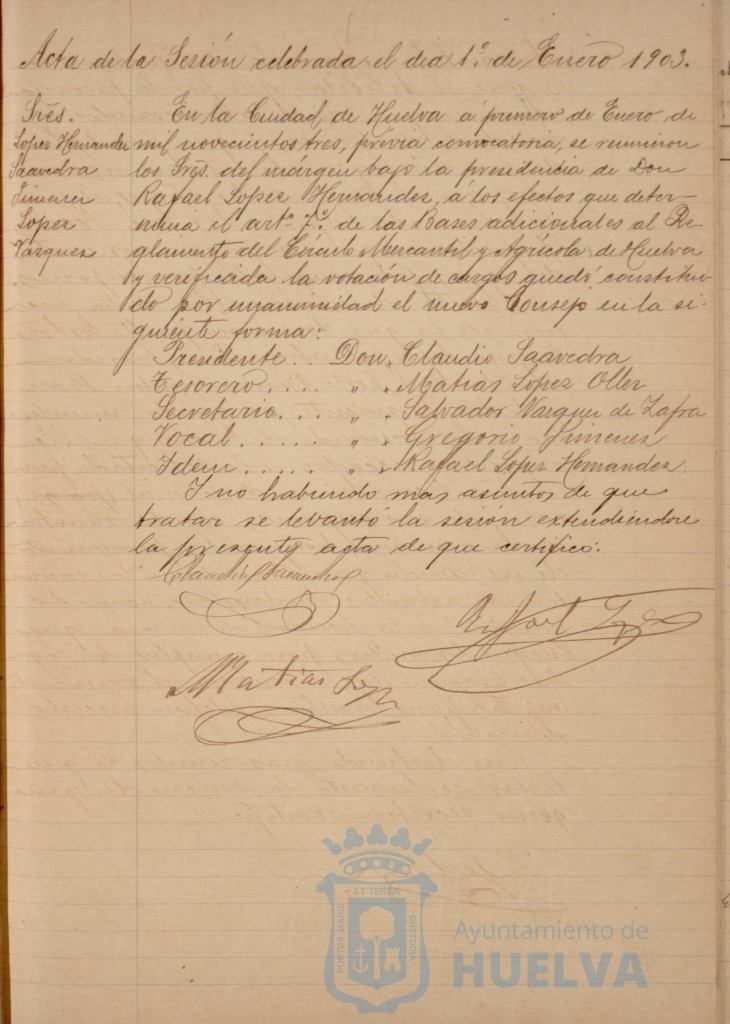 Acta de la Sesión celebrada el dia 1º de Enero 1903.
Srēs.
Lopez Hernandez
Saavedra
Jimenez
Lopez
Vazquez
En la Ciudad, de Huelva á primero de Enero de
mil novecientos tres, prévia convocatoria, se reunieron
los Srēs. del márgen bajo la presidencia de Don
Rafael Lopez Hernandez, á los efectos que deter-
mina el artº 7º de las Bases adicionales al Re-
glamento del Círculo Mercantil y Agrícola de Huelva
y verificada la votación de cargos quedó constitui-
do por unanimidad el nuevo Consejo en la si-
guiente forma:
Presidente... Don, Claudio Saavedra
Tesorero.... " " Matias Lopez Oller
Secretario... " " Salvador Vazquez de Zafra
Vocal..... " " Gregorio Jimenez
Idem..... " " Rafael Lopez Hernandez.
I no habiendo mas asuntos de que
tratar se levantó la sesión extendiendose
la presente acta de que certifico.
Claudio Saavedra
Rafael Lopez
Matias Lopez
ET TERRA
PORTUS MARIS
CUSTODIA
Ayuntamiento de
HUELVA